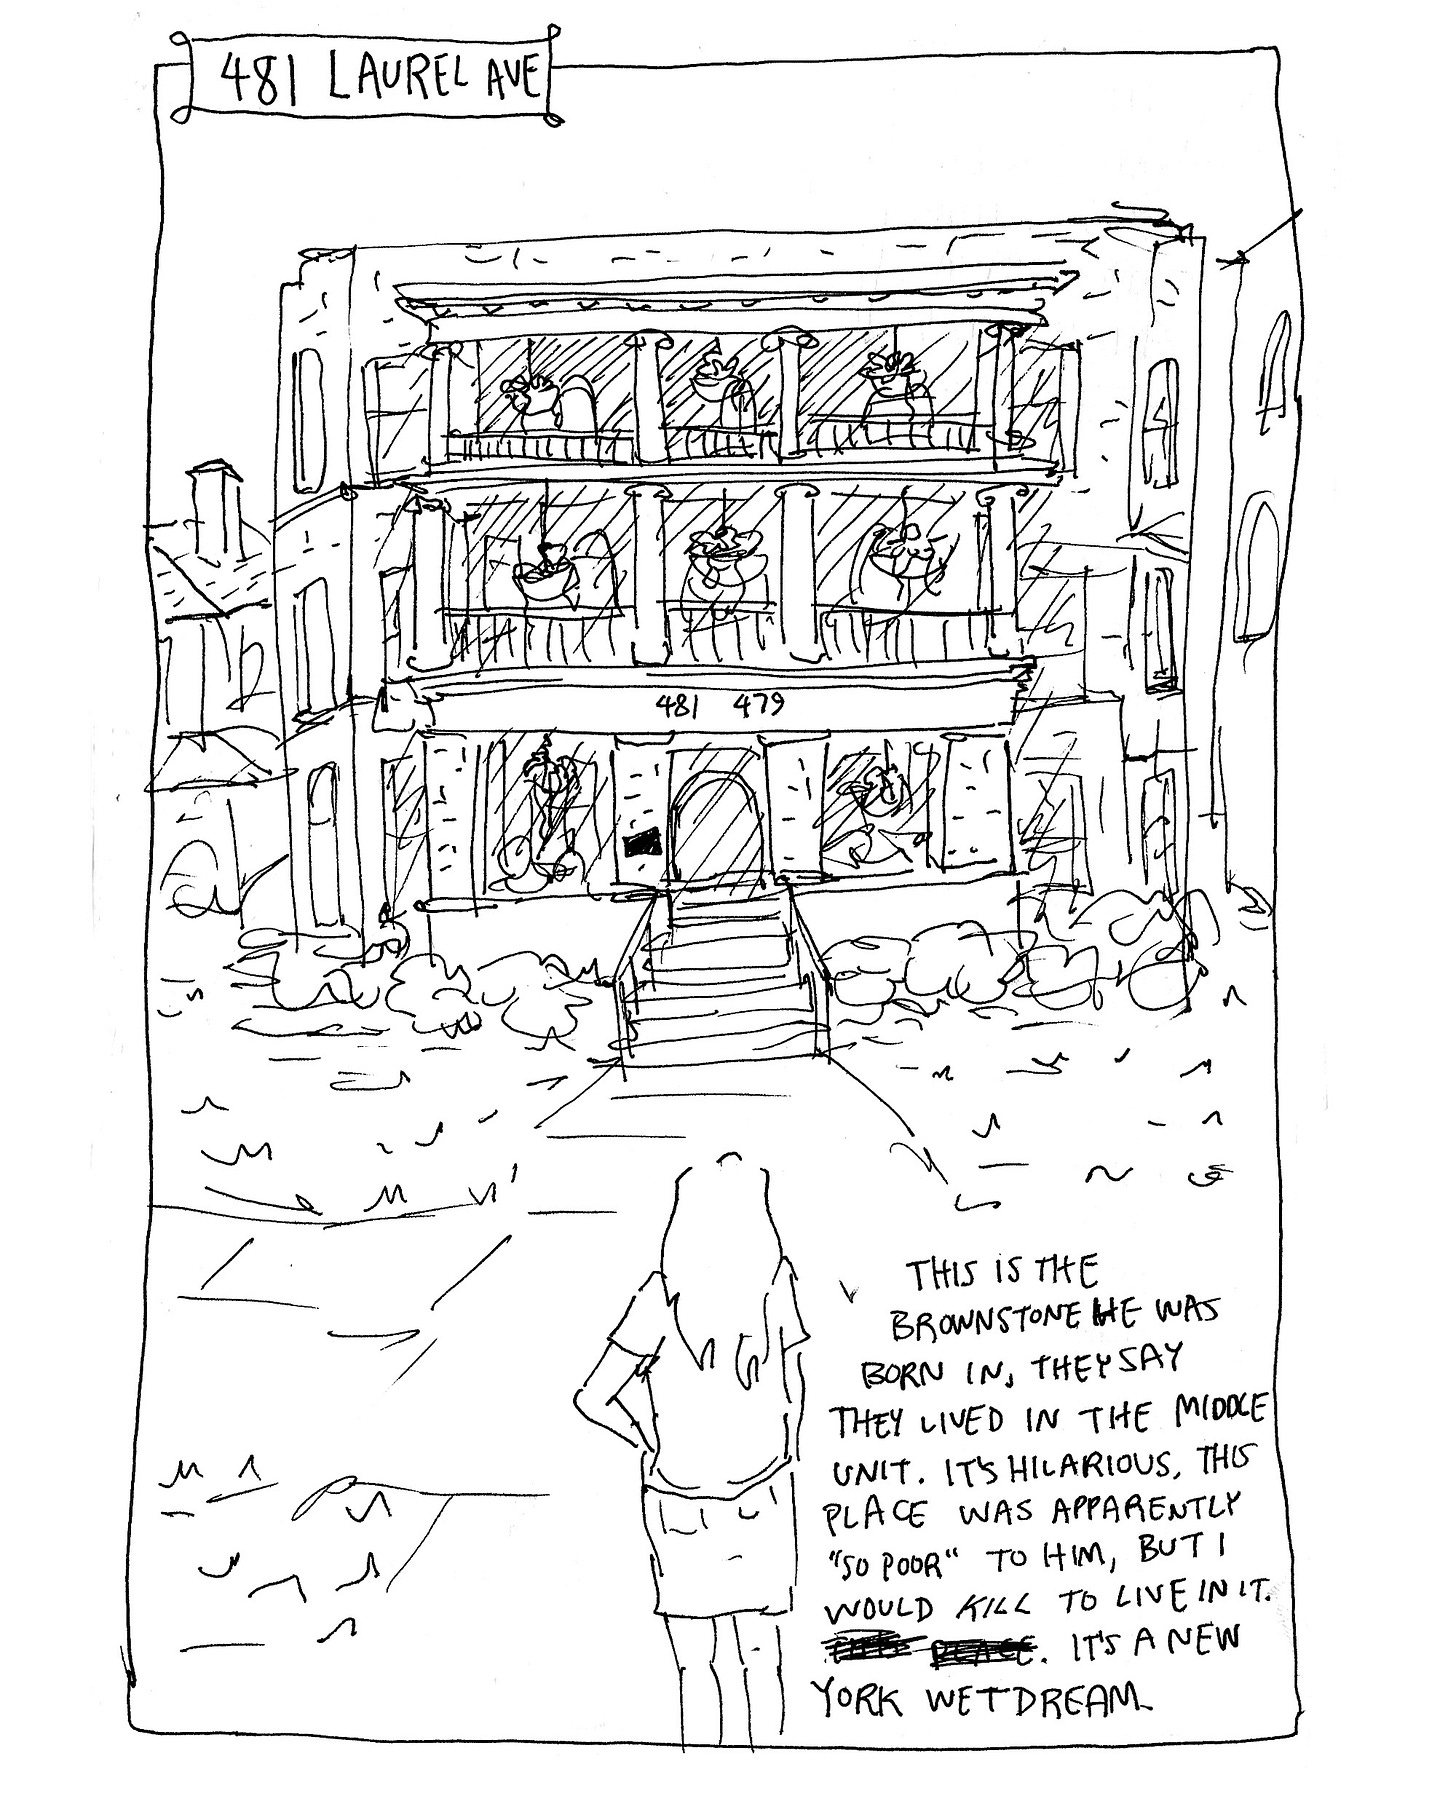 481 LAUREL AVE
481 479
THIS IS THE
BROWNSTONE HE WAS
BORN IN, THEY SAY
THEY LIVED IN THE MIDDLE
UNIT. IT'S HILARIOUS, THIS
PLACE WAS APPARENTLY
"SO POOR" TO HIM, BUT I
WOULD KILL TO LIVE IN IT.
THIS PLACE. IT'S A NEW
YORK WET DREAM.